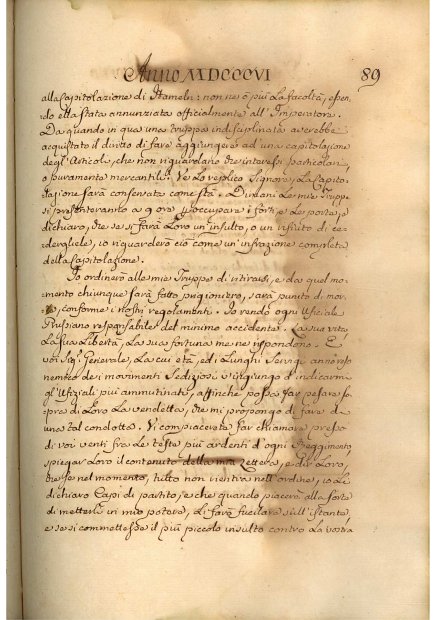 Anno MDCCCVI 89
alla Capitolazione di Hameln: non ne à più la facoltà, essen-
do ella stata annunziata officialmente all' Imperatore.
Da quando in qua una truppa indisciplinata averebbe
acquistato il diritto di fare aggiungere ad una capitolazione
degl' Articoli, che non riguardano che interessi particolari
o puramente mercantili? Ve lo replico Signore, La Capito-
lazione sarà conservata come stà. Dimani le mie Trup-
pe si presenteranno a 9 ore p occupare i forti, e le porte, e
dichiaro, che se si farà Loro un' insulto, o un rifiuto di ce-
derglele, io riguarderò ciò come un' infrazione completa
della Capitolazione.
Io ordinerò alle mie Truppe di ritirarsi, e da quel mo-
mento chiunque sarà fatto prigioniero, sarà punito di mor-
conforme i nostri regolamenti. Io rendo ogni Uficiale
Prussiano responsabile del minimo accidente. La sua vita
La sua Libertà, La sua fortuna me ne rispondono. E
voi Sig. Generale, La cui età, ed i Lunghi servigi anno reso
nemico dei movimenti sediziosi v'ingiungo d' indicarmi
gl' Ufiziali più ammutinati, affinchè possa far pesare so-
pra di Loro La vendetta, che mi propongo di fare d'
una tal condotta. Vi compiacerete far chiamare presso
di voi venti fra Le teste più ardenti d' ogni Reggimento
spiegar Loro il contenuto della mia Lettera, e dir Loro,
che se nel momento, tutto non rientra nell' ordine, io Li
dichiaro Capi di partito, e che quando piacerà alla sorte
di metterli in mio potere, Li farò fucilare sull' istante,
e se si commettesse il più piccolo insulto contro La vostra